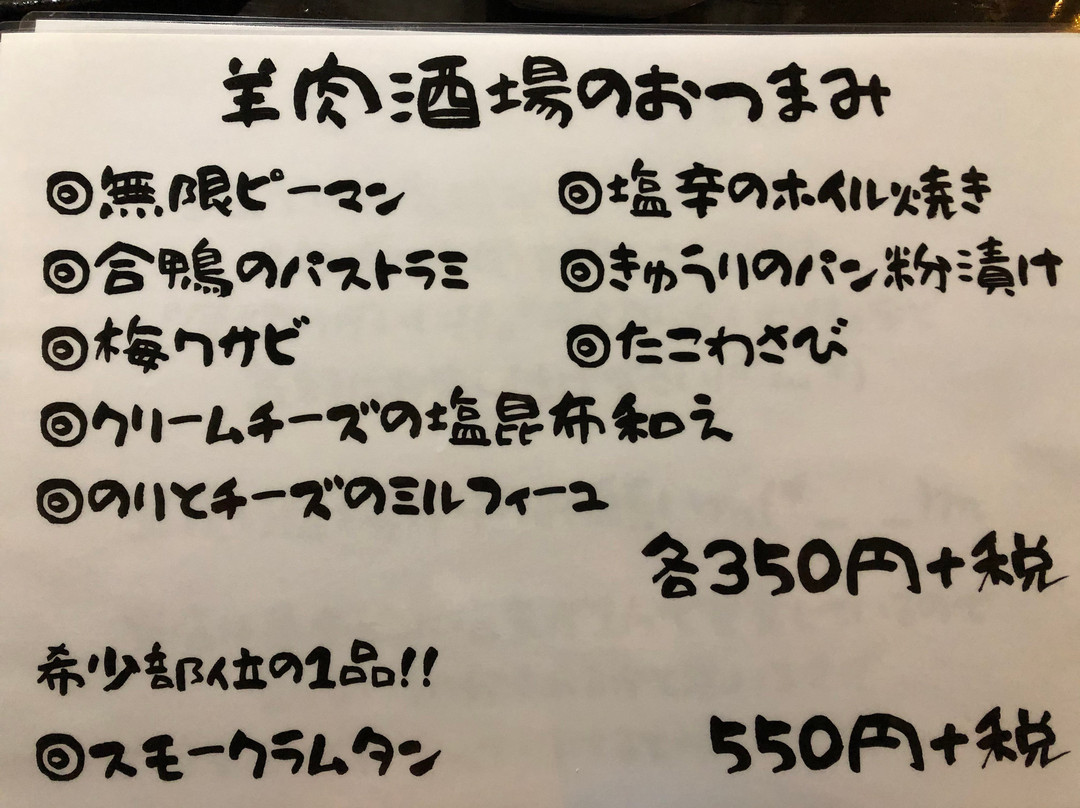 羊肉酒場のおつまみ
◎無限ピーマン ◎塩辛のホイル焼き
◎合鴨のパストラミ ◎きゅうりのパン粉漬け
◎梅ワサビ ◎たこわさび
◎クリームチーズの塩昆布和え
◎のりとチーズのミルフィーユ
各350円+税
希少部位の1品!!
◎スモークラムタン 550円+税